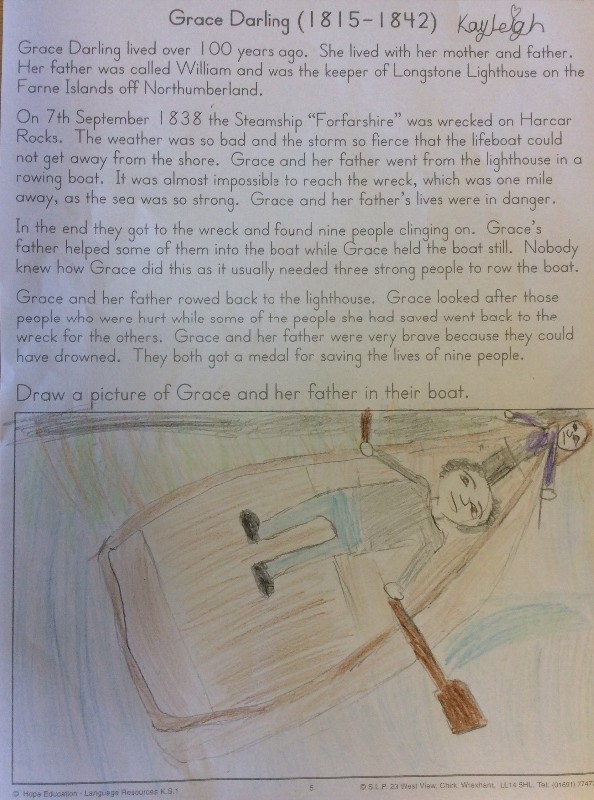 Grace Darling (1815-1842) Kayleigh
Grace Darling lived over 100 years ago. She lived with her mother and father.
Her father was called William and was the keeper of Longstone Lighthouse on the
Farne Islands off Northumberland.
On 7th September 1838 the Steamship "Forfarshire" was wrecked on Harcar
Rocks. The weather was so bad and the storm so fierce that the lifeboat could
not get away from the shore. Grace and her father went from the lighthouse in a
rowing boat. It was almost impossible to reach the wreck, which was one mile
away, as the sea was so strong. Grace and her father's lives were in danger.
In the end they got to the wreck and found nine people clinging on. Grace's
father helped some of them into the boat while Grace held the boat still. Nobody
knew how Grace did this as it usually needed three strong people to row the boat.
Grace and her father rowed back to the lighthouse. Grace looked after those
people who were hurt while some of the people she had saved went back to the
wreck for the others. Grace and her father were very brave because they could
have drowned. They both got a medal for saving the lives of nine people.
Draw a picture of Grace and her father in their boat.
© Hope Education - Language Resources K.S.1 5 © S.L.P. 23 West View, Chirk, Wrexham, LL14 5HL. Tel: